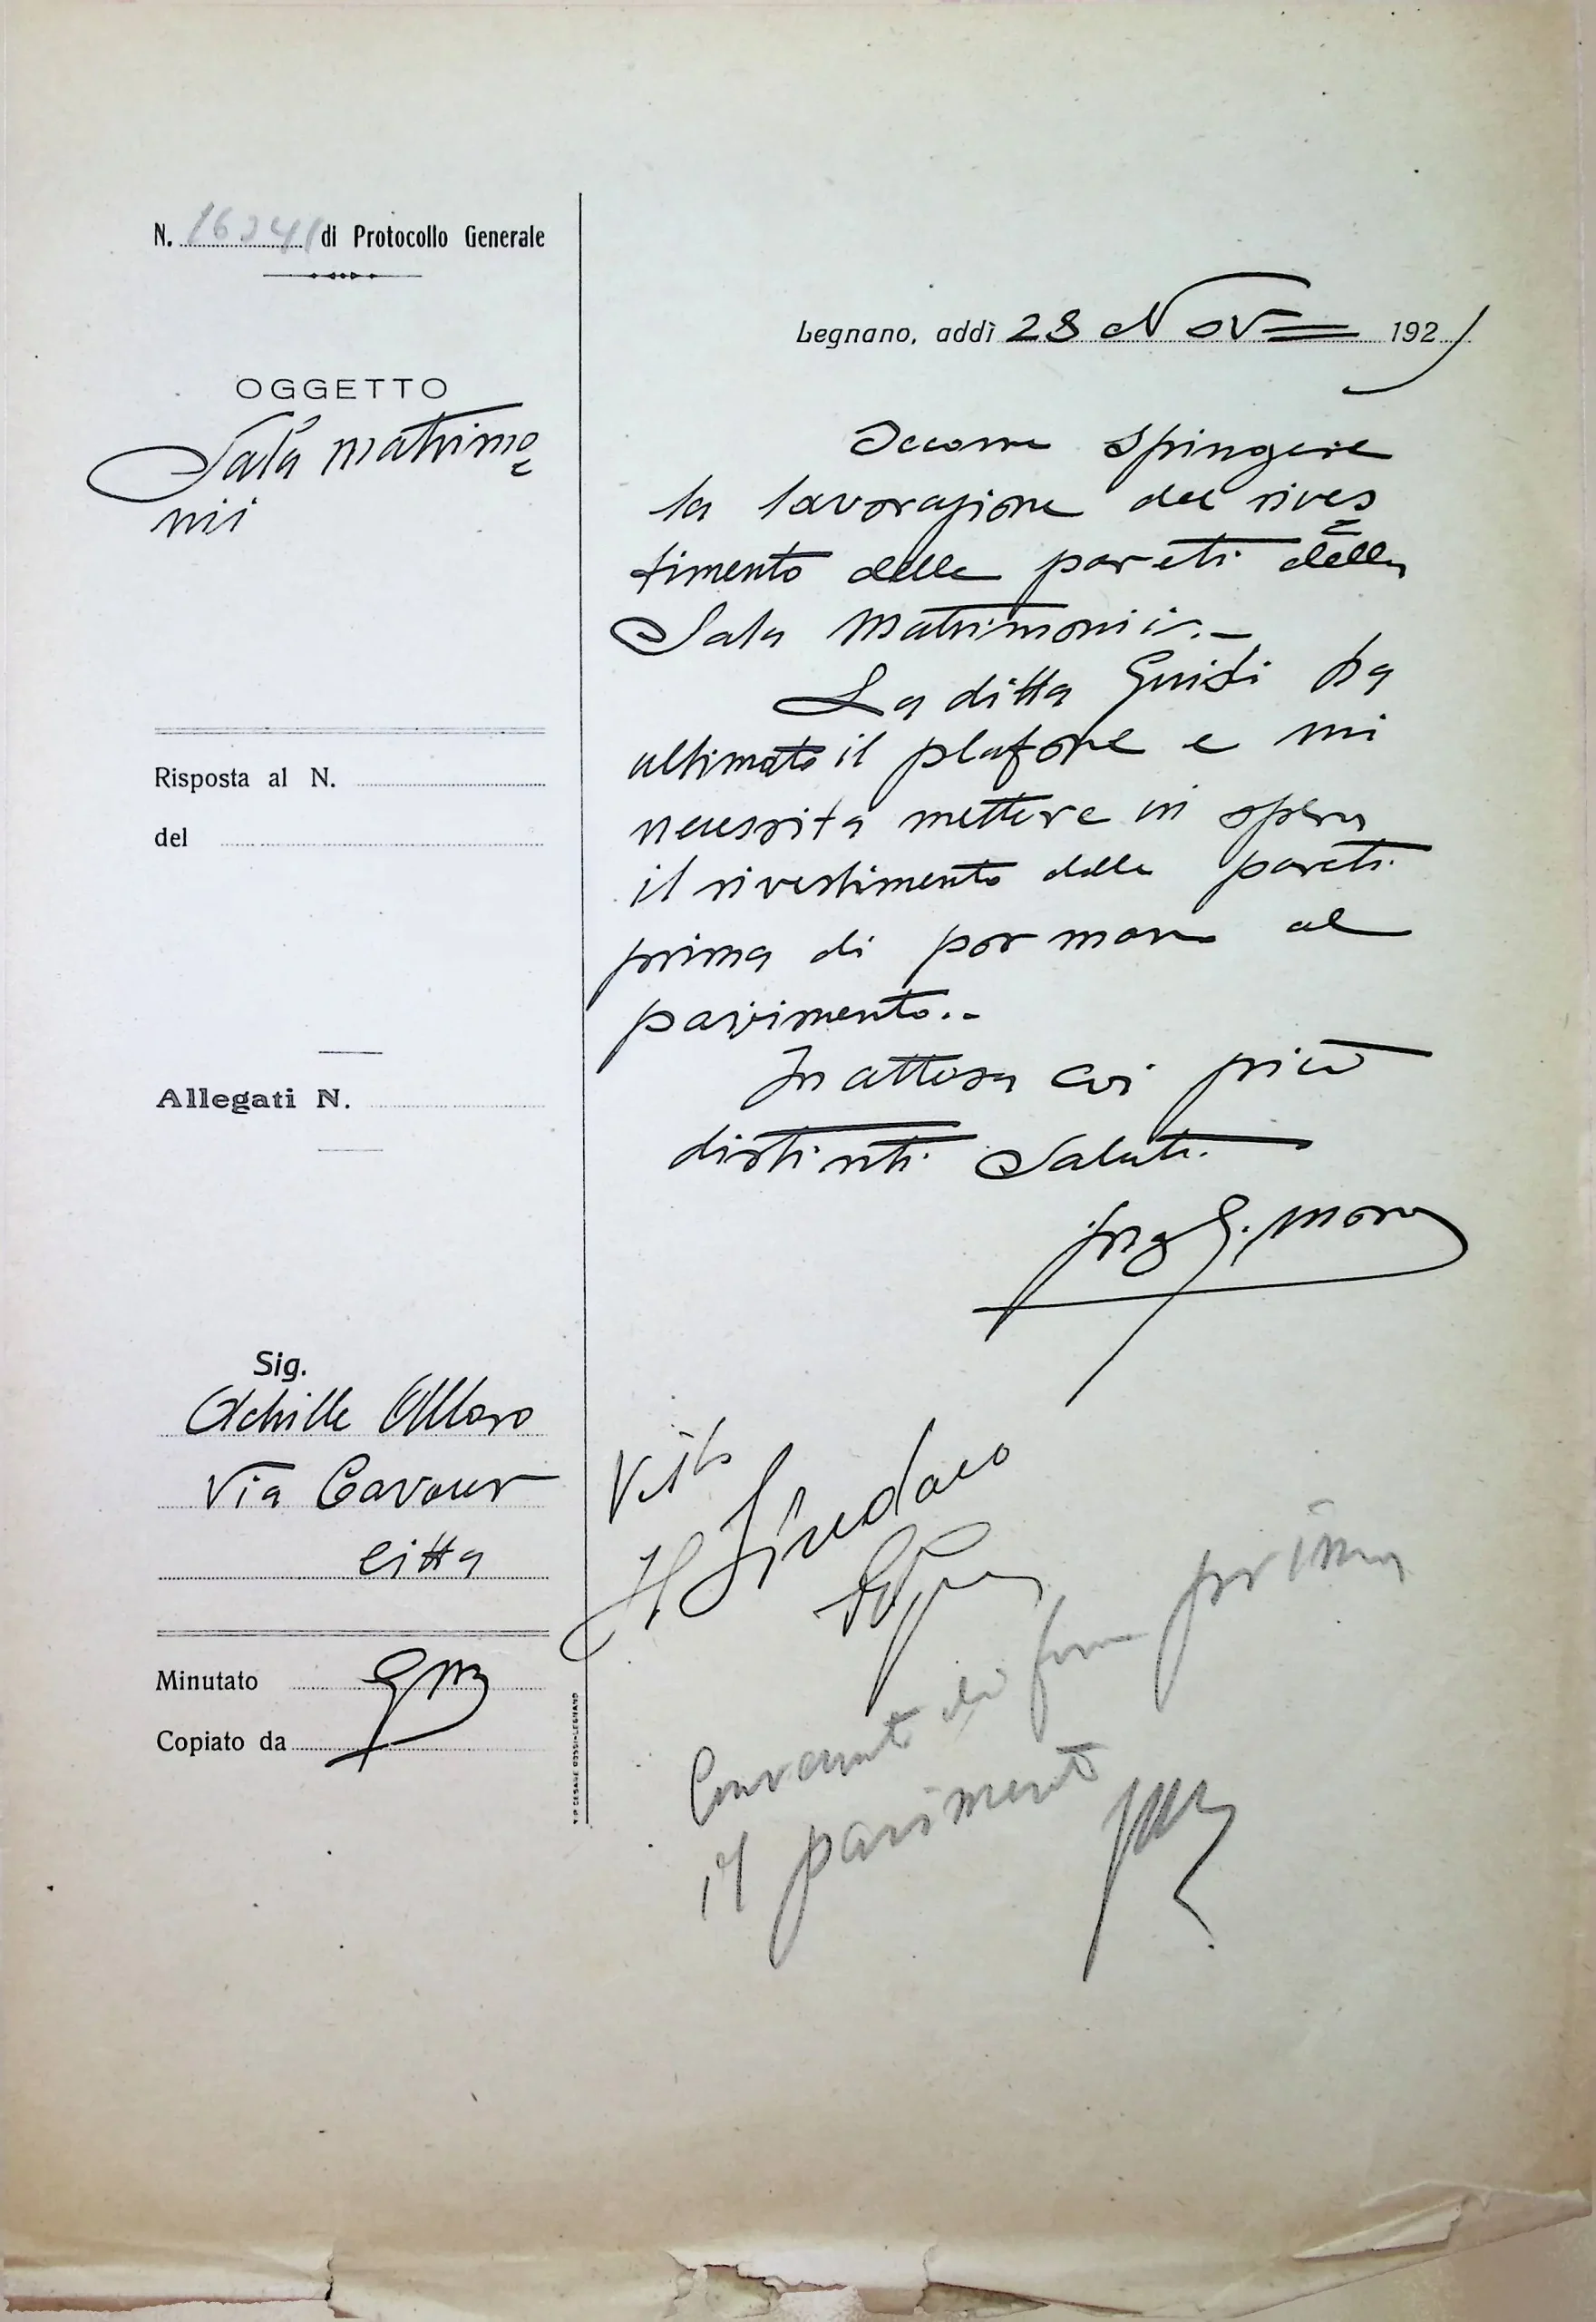 N. 16241 di Protocollo Generale
OGGETTO
Sala matrimo
nii
Risposta al N.
del
Allegati N.
Sig.
Achille
Via Cavour
città
Minutato GM
Copiato da
TIP. CESARE ROSSI-LEGNANO
Legnano, addì 28 Nov 192
Occorre spingere
la lavorazione del rives
timento delle pareti della
Sala Matrimonii.-
La ditta Guidi ha
ultimato il plafone e mi
necessita mettere in opera
il rivestimento delle pareti
prima di por mano al
pavimento..
In attesa coi più
distinti saluti.
Ing G. Mora
Visto
Il Sindaco
prima
il pavimento